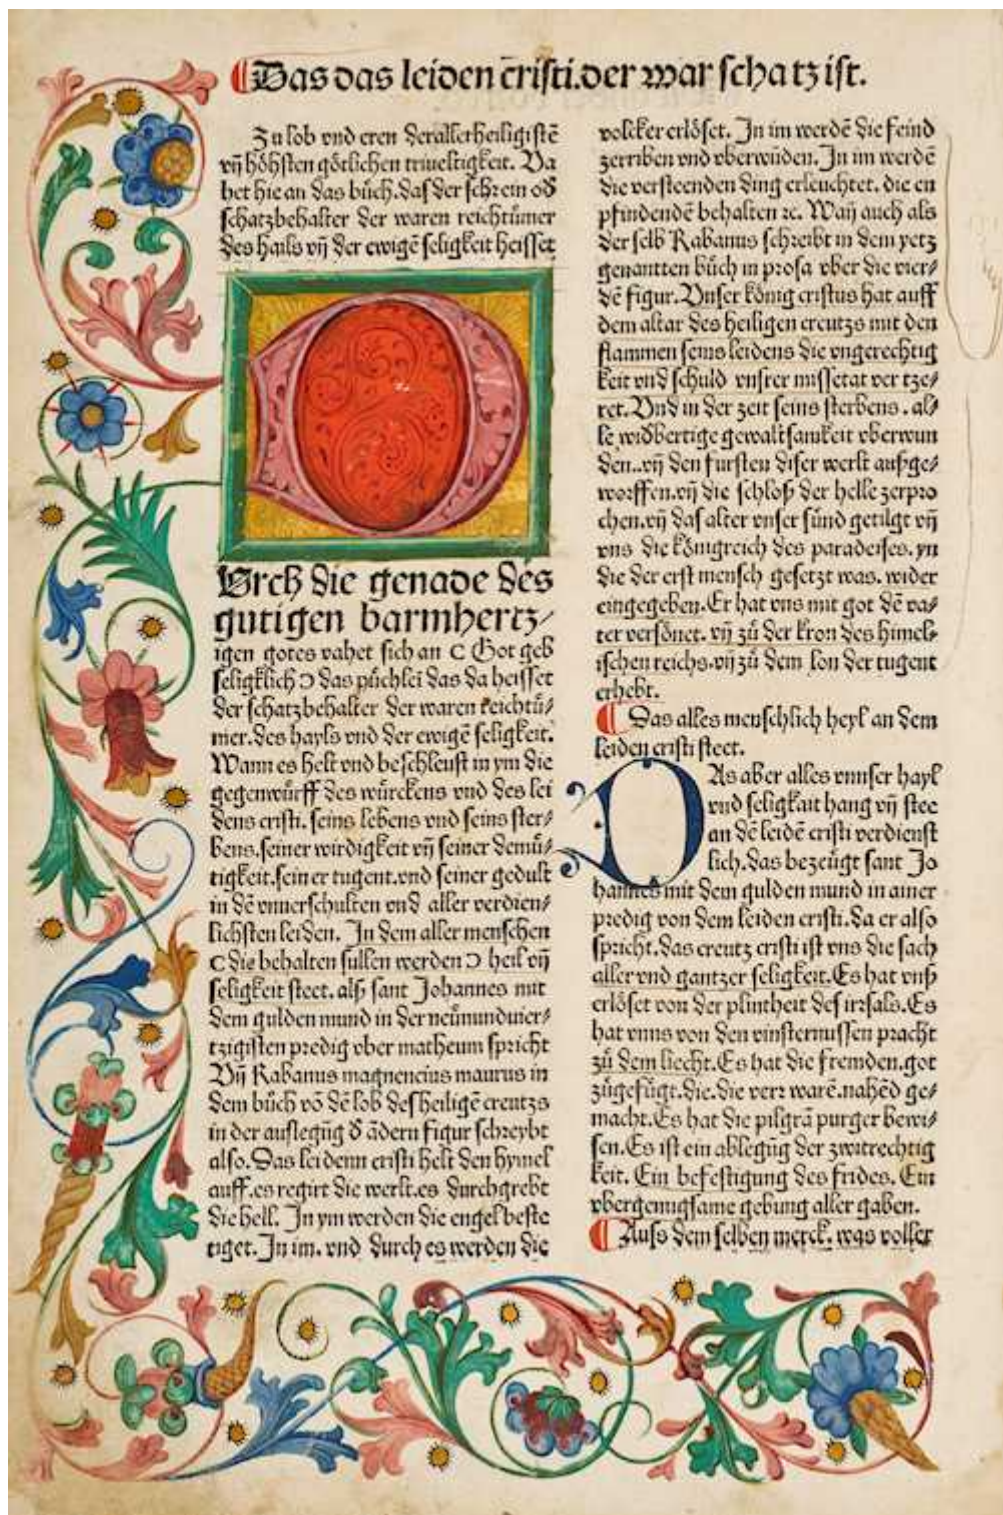 Das das leiden c̄risti.der war schatz ist.
Zu lob vnd eren der allerheiligistē
vn̄ höhsten götlichen triueltigkeit. Va
het hie an das bůch.das der schrein oď
schatzbehalter der waren reichtůmer
des hails vn̄ der ewigē seligkeit heisset
Vrch die genade des
gutigen barmhertz⸗
igen gotes vahet sich an ⊂ Got geb
seligklich ⊃ das půchlei das da heisset
der schatzbehalter der waren reichtů⸗
mer.des hayls vnd der ewigē seligkeit.
Wann es helt vnd beschleust in ym die
gegenwůrff des wůrckens vnd des lei
dens cristi. seins lebens vnd seins ster⸗
bens.seiner wirdigkeit vn̄ seiner demů⸗
tigkeit.seiner tugent.vnd seiner gedult
in dē vnuerschulten vnd aller verdien⸗
lichsten leiden. In dem aller menschen
⊂ die behalten sullen werden ⊃ heil vn̄
seligkeit steet. alß sant Johannes mit
dem gulden mund in der neůnundvier⸗
tzigisten predig vber matheum spricht
Vn̄ Rabanus magnencius maurus in
dem bůch vō dē lob des heiligē creutzs
in der auslegūg ď ādern figur schreybt
also.Das leidenn cristi helt den hymel
auff.es regirt die werlt.es durchgrebt
die hell. In ym werden die engel beste
tiget. In im. vnd durch es werden die
volcker erlöset. In im werdē die feind
zerriben vnd vberwūden. In im werdē
die versteenden ding erleuchtet. die en
pfindendē behalten ꝛc. Wan̄ auch als
der selb Rabanus schreibt in dem yetz
genantten bůch in prosa vber die vier⸗
dē figur.Vnser könig cristus hat auff
dem altar des heiligen creutzs mit den
flammen seins leidens die vngerechtig
keit vnd schuld vnsrer missetat ver tze⸗
ret.Vnd in der zeit seins sterbens . al⸗
le widbertige gewaltsamkeit vberwun
den..vn̄ den fursten diser werlt außge⸗
worffen.vn̄ die schloß der helle zerpro
chen.vn̄ das alter vnser sůnd getilgt vn̄
vns die kőnigreich des paradeises. yn
die der erst mensch gesetzt was. wider
eingegeben.Er hat vns mit got dē va⸗
ter versőnet. vn̄ zů der kron des himel⸗
ischen reichs.vn̄ zů dem lon der tugent
erhebt.
Das alles menschlich heyl an dem
leiden cristi steet.
DAs aber alles vnnser hayl
vnd seligkait hang vn̄ stee
an dē leidē cristi verdienst
lich.das bezeůgt sant Jo
hannes mit dem gulden mund in ainer
predig von dem leiden cristi.da er also
spricht.das creutz cristi ist vns die sach
aller vnd gantzer seligkeit.Es hat vnß
erlőset von der plintheit des irrsals.Es
hat vnns von den vinsternussen pracht
zů dem liecht.Es hat die fremden.got
zůgefůgt.die.die verr warē.nahēd ge⸗
macht.Es hat die pilgrā purger bewi⸗
sen.Es ist ein ablegūg der zwitrechtig
keit. Ein befestigung des frides. Ein
vbergenugsame gebung aller gaben.
Auss dem selben merck. was voller